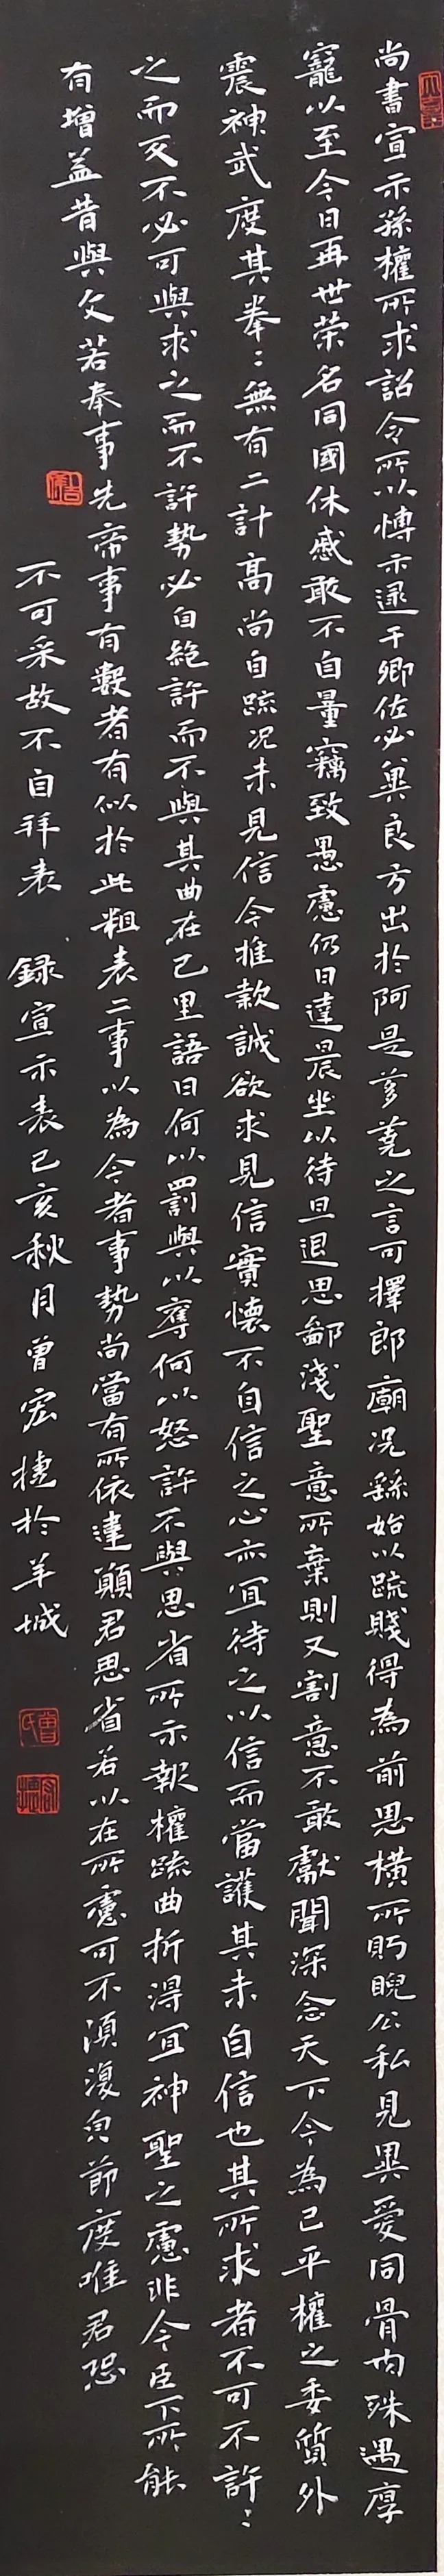 尚書宣示孫權所求詔令所以博示逮于卿佐必冀良方出於阿是芻蕘之言可擇郎廟況繇始以疏賤得為前恩橫所眄睨公私見異愛同骨肉殊遇厚
寵以至今日再世榮名同國休慼敢不自量竊致愚慮仍日達晨坐以待旦退思鄙淺聖意所棄則又割意不敢獻聞深念天下今為已平權之委質外
震神武度其拳：無有二計高尚自疏況未見信今推款誠欲求見信實懷不自信之心亦宜待之以信而當護其未自信也其所求者不可不許：
之而反不必可與求之而不許勢必自絕許而不與其曲在己里語曰何以罰與以奪何以怒許不與思省所示報權疏曲折得宜神聖之慮非今臣下所能
有增益昔與文若奉事先帝事有數者有似於此粗表二事以為今者事勢尚當有所依違願君思省若以在所慮可不須復皃節度唯君恐
不可采故不自拜表 錄宣示表己亥秋月曾宏捷於羊城
曾氏
宏捷